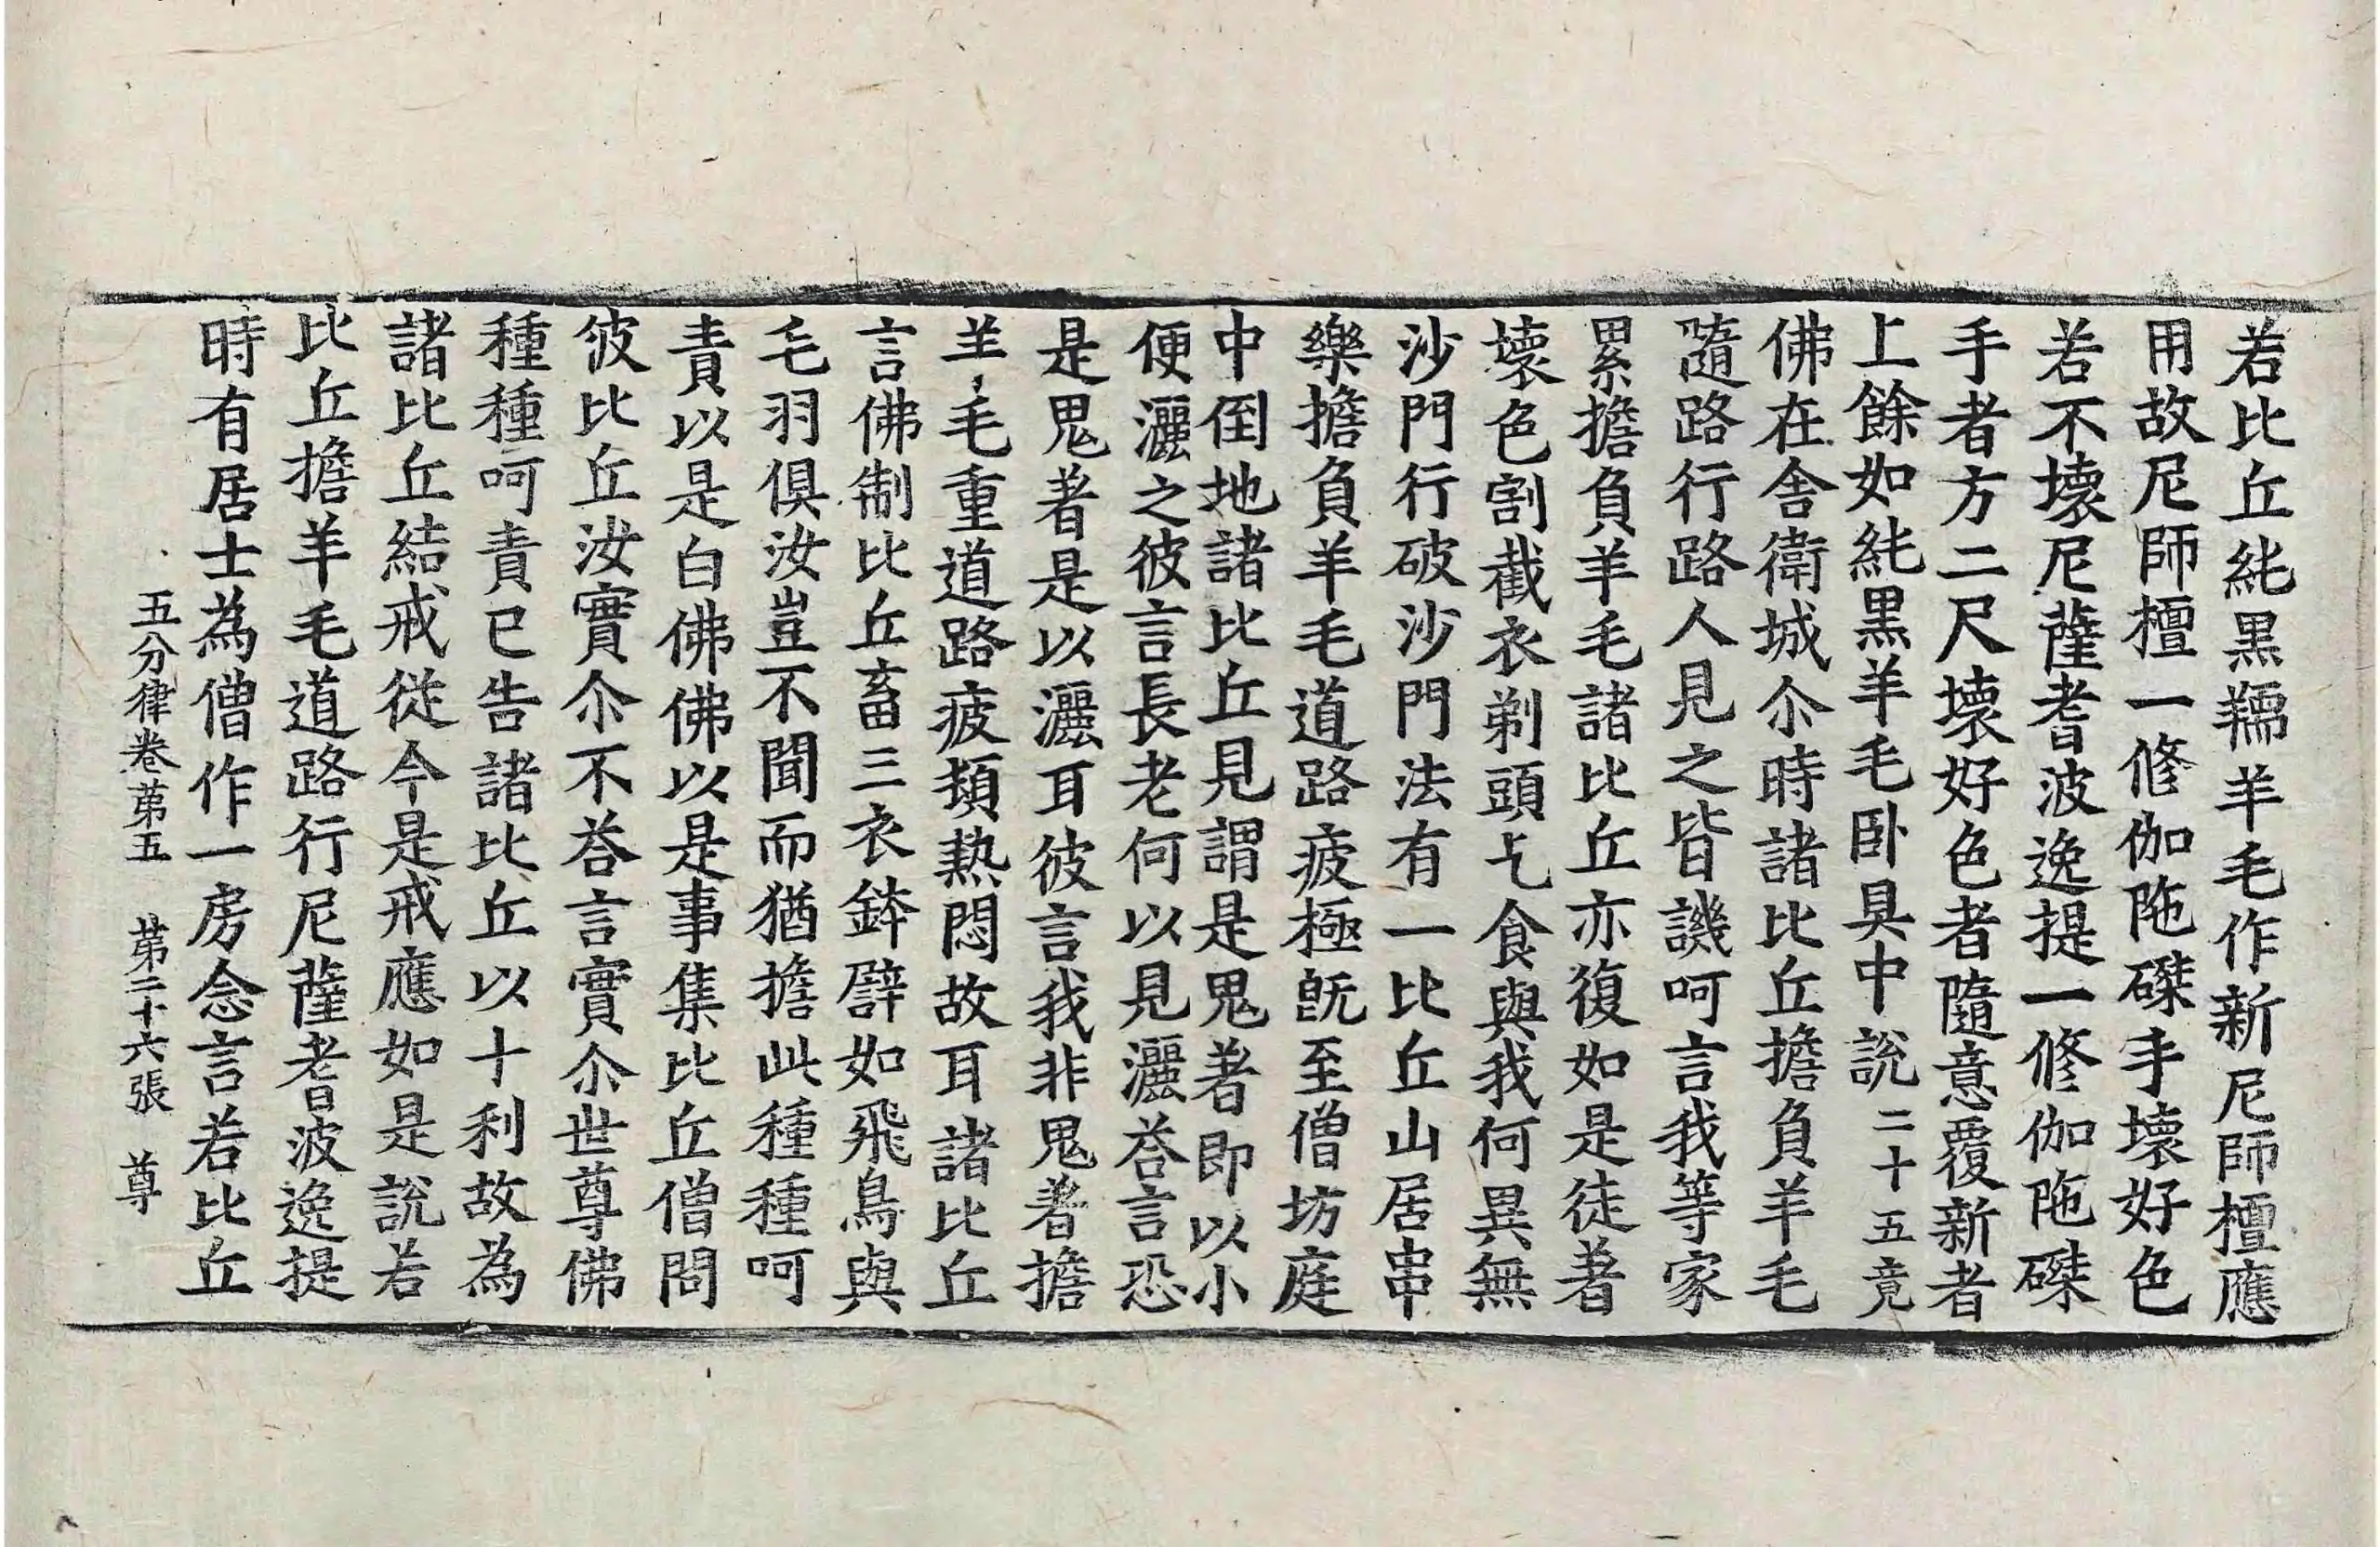 若比丘純黑羺羊毛作新尼師檀應
用故尼師檀一修伽陁磔手壞好色
若不壞尼薩耆波逸提一修伽陁磔
手者方二尺壞好色者隨意覆新者
上餘如純黑羊毛卧具中說二十五竟
佛在舍衛城尒時諸比丘擔負羊毛
隨路行路人見之皆譏呵言我等家
累擔負羊毛諸比丘亦復如是徒著
壞色割截衣剃頭乞食與我何異無
沙門行破沙門法有一比丘山居串
樂擔負羊毛道路疲極旣至僧坊庭
中倒地諸比丘見謂是鬼著即以小
便灑之彼言長老何以見灑荅言恐
是鬼著是以灑耳彼言我非鬼著擔
羊毛重道路疲頓熱悶故耳諸比丘
言佛制比丘畜三衣鉢譬如飛鳥與
毛羽俱汝豈不聞而猶擔此種種呵
責以是白佛佛以是事集比丘僧問
彼比丘汝實尒不荅言實尒世尊佛
種種呵責已告諸比丘以十利故為
諸比丘結戒從今是戒應如是說若
比丘擔羊毛道路行尼薩耆波逸提
時有居士為僧作一房念言若比丘
五分律卷第五 第二十六張 尊